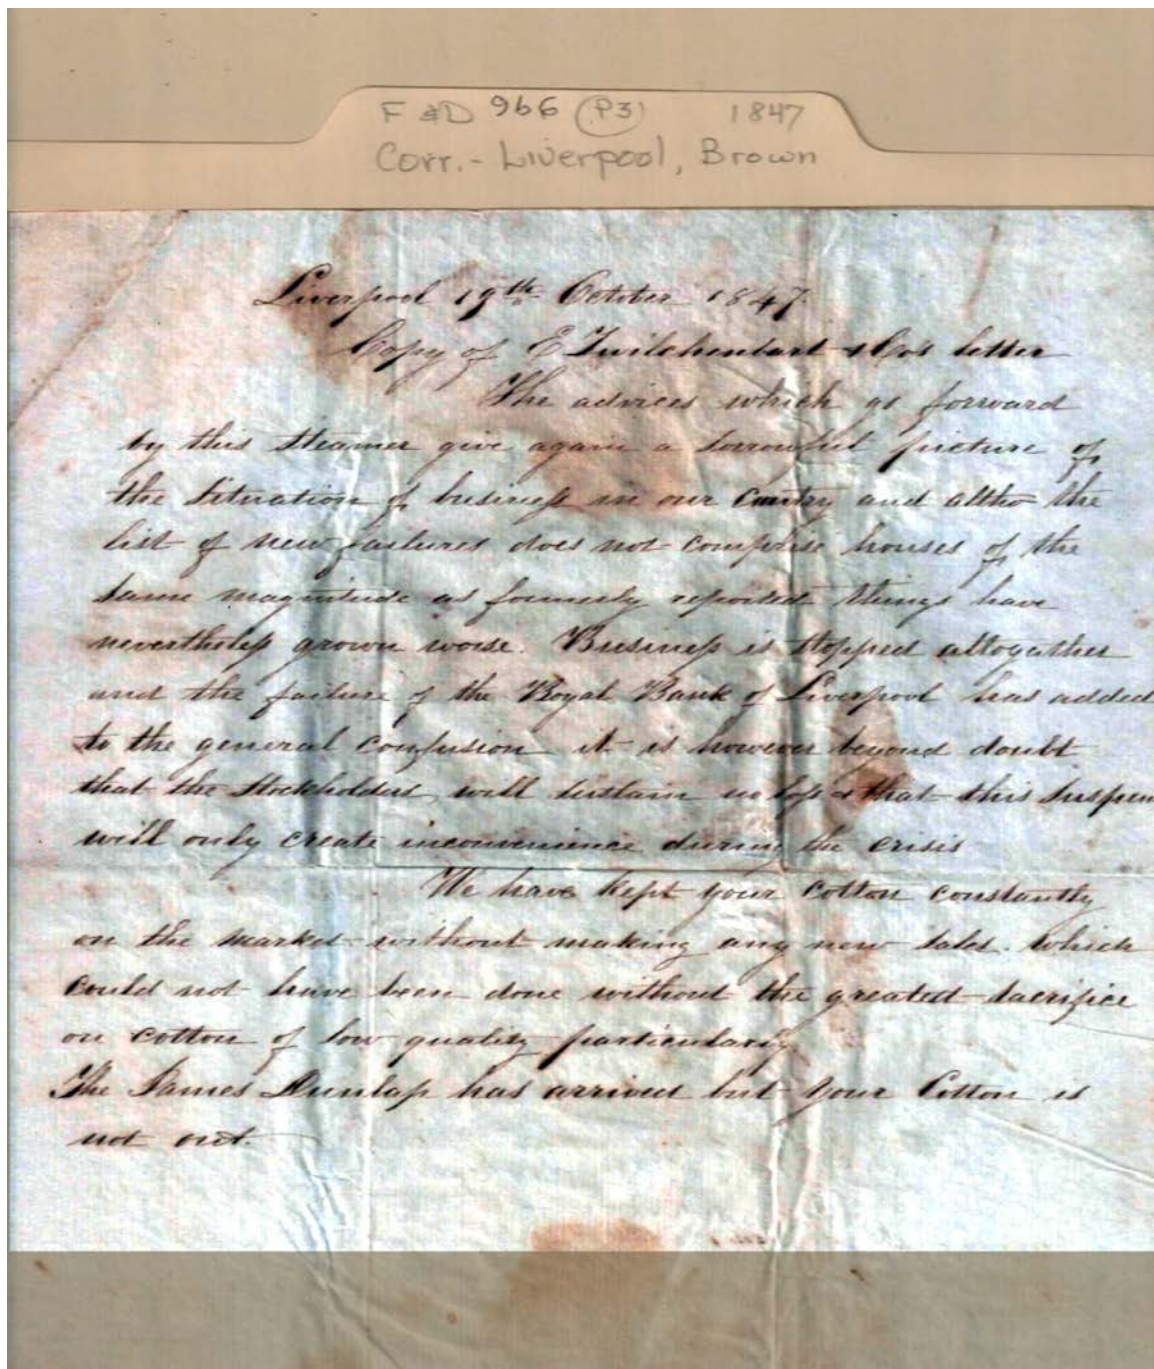 F & D 966 (P3) 1847
Corr. - Liverpool, Brown
Liverpool 19th October 1847.
Copy of E Zwilchenbart & Co's letter
The advices which go forward
by this Steamer give again a sorrowful picture of
the Situation of business in our Country and altho the
list of new failures does not comprise houses of the
same magnitude as formerly reported things have
nevertheless grown worse. Business is stopped altogather
and the failure of the Royal Bank of Liverpool has added
to the general confusion it is however beyond doubt
that the Stockholders will sustain no loss & that this Suspen
will only create inconvenience during the crisis
We have kept your Cotton constantly
on the market without making any new sales. which
could not have been done without the greatest sacrifice
on cotton of low quality particularly
The James Dunlap has arrived but your Cotton is
not out.